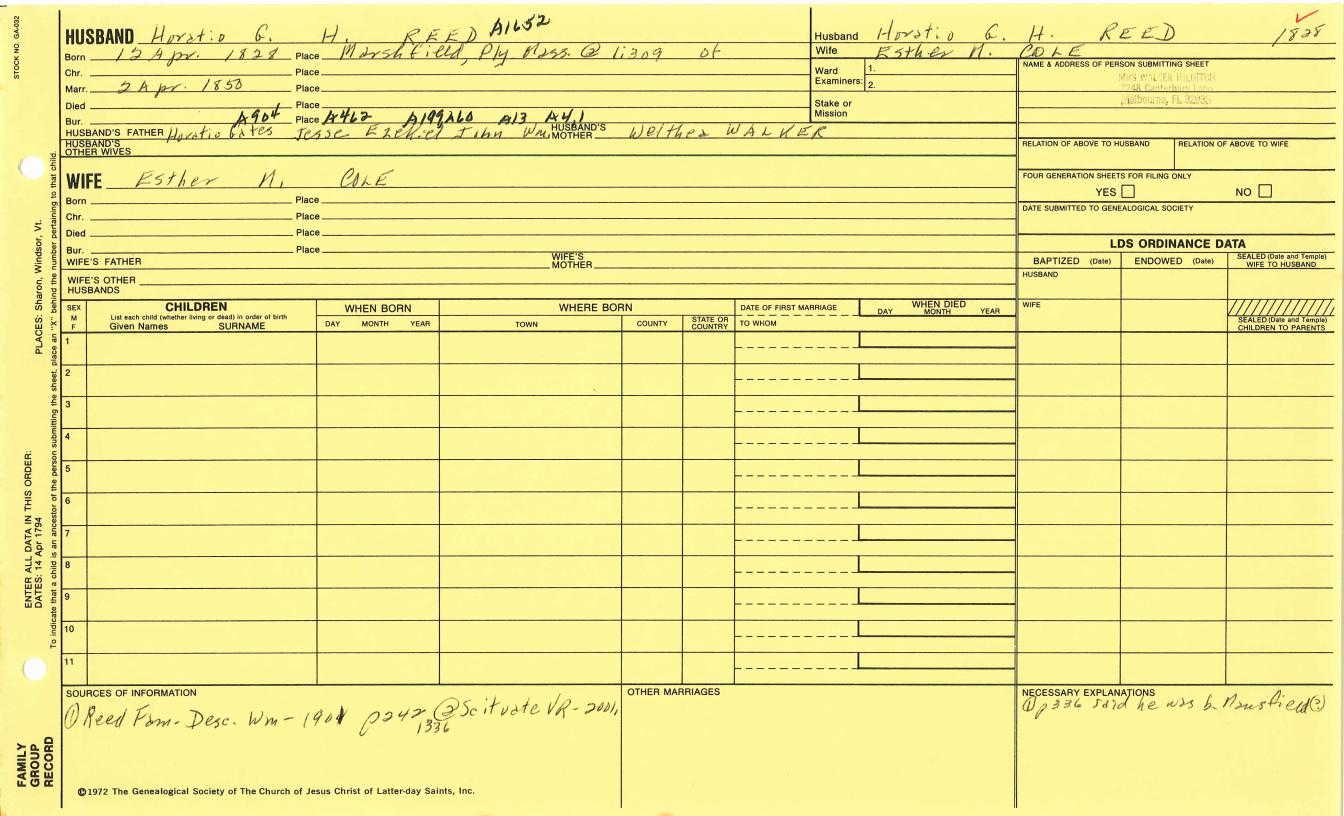 STOCK NO. GA-032
HUSBAND Horatio G. H. REED A1652
Born 12 Apr. 1828 Place Marshfield, Ply Mass. @
Chr. Place
Marr. 2 Apr. 1850 Place
Died Place
Bur. A904 Place A462 A199 A60 A13 A4,1
HUSBAND'S FATHER Horatio Gates Jesse Ezekiel John Wm. HUSBAND'S MOTHER Welthea WALKER
HUSBAND'S OTHER WIVES
WIFE Esther N. COLE
Born Place
Chr. Place
Died Place
Bur. Place
WIFE'S FATHER WIFE'S MOTHER
WIFE'S OTHER HUSBANDS
Husband Horatio G. H. REED 1828
Wife Esther N. COLE
Ward Examiners: 1.
2.
Stake or Mission
NAME & ADDRESS OF PERSON SUBMITTING SHEET
Melbourne, FL
RELATION OF ABOVE TO HUSBAND RELATION OF ABOVE TO WIFE
FOUR GENERATION SHEETS FOR FILING ONLY
YES NO
DATE SUBMITTED TO GENEALOGICAL SOCIETY
LDS ORDINANCE DATA
BAPTIZED (Date) ENDOWED (Date) SEALED (Date and Temple) WIFE TO HUSBAND
HUSBAND
WIFE
SEALED (Date and Temple) CHILDREN TO PARENTS
SEX M F
CHILDREN
List each child (whether living or dead) in order of birth
Given Names SURNAME
WHEN BORN
DAY MONTH YEAR
WHERE BORN
TOWN COUNTY STATE OR COUNTRY
DATE OF FIRST MARRIAGE
TO WHOM
WHEN DIED
DAY MONTH YEAR
1
2
3
4
5
6
7
8
9
10
11
SOURCES OF INFORMATION
① Reed Fam- Desc. Wm- 1901 p242 @ Scituate VR- 2001,
1336
OTHER MARRIAGES
NECESSARY EXPLANATIONS
① p336 said he was b. Mansfield(?)
©1972 The Genealogical Society of The Church of Jesus Christ of Latter-day Saints, Inc.
FAMILY GROUP RECORD
ENTER ALL DATA IN THIS ORDER:
DATES: 14 Apr 1794 PLACES: Sharon, Windsor, Vt.
To indicate that a child is an ancestor of the person submitting the sheet, place an "X" behind the number pertaining to that child.